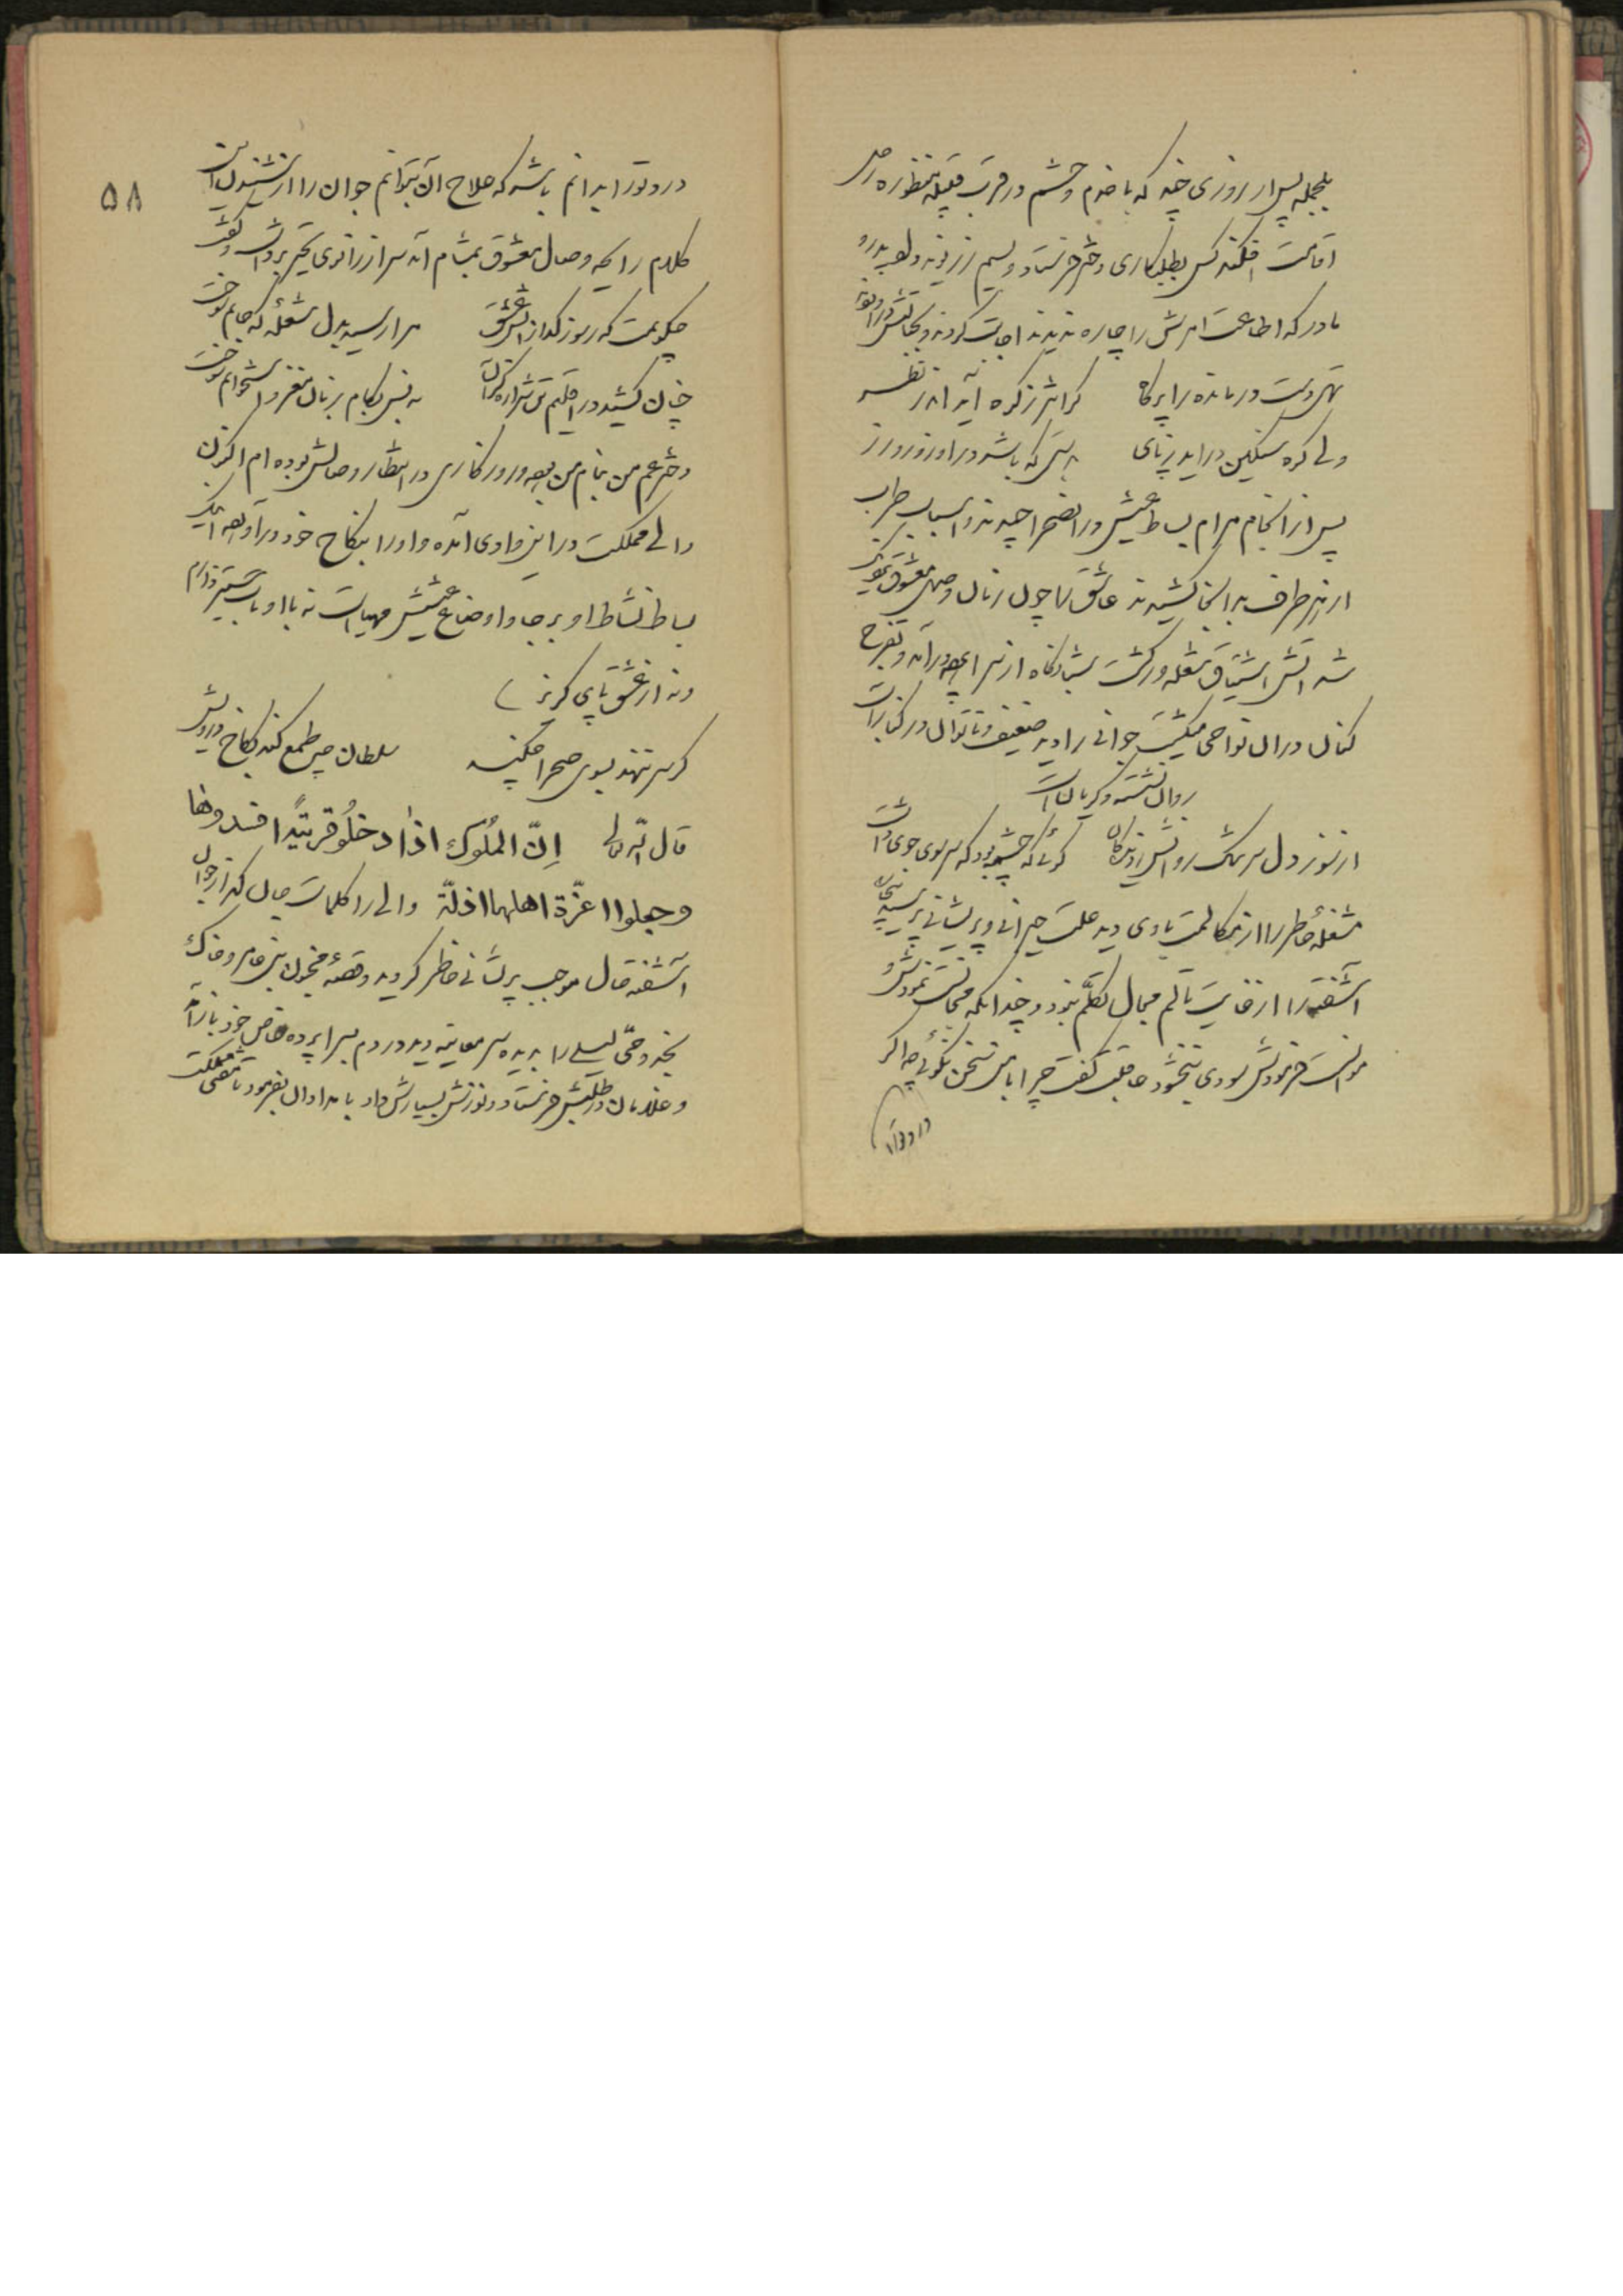 بالجمله پس از روزی چند که با خدم و حشم در قرب قبیله منظوره رحل
اقامت افکند کس بطلبکاری دختر فرستاد و سیم و زر پدر و
مادر که اطاعت امرش را چاره ندیدند اجابت کردند
تهی دست درمانده را پر کاه گرانتر ز کوه آید اندر نظر
ولی کوه سنگین درآید ز پای بر کس که باشد در او زور و زر
پس از انجام مرام بساط عیش در آن صحرا چیدند و اسباب طرب
از هر طرف بدانجا کشیدند عاشق را چون زمان وصل معشوق نزدیک
شد آتش اشتیاق شعله‌ور گشت شبانگاه از سراپرده درآمد و تفرج
کنان در آن نواحی میگشت جوانی را دید ضعیف و ناتوان در کنار آب
روان نشسته و گریان است
از سوز دل سرشک روانش ز دیدگان گوئی که چشمه بود که سر سوی جوی داشت
مشغله خاطر را از مکالمت با وی دید علت حیرانی و پریشانی پرسید
آشفته را از غایت تألم مجال تکلم نبود و چندانکه مجالست نمودش و
موانست فرمودش سودی نبخشود عاقبت گفت چرا با من سخن نگوئی چه اگر
درد ترا
۵۸
درد تو را بدانم باشد که علاج آن بتوانم جوان را از شنیدن این
کلام رایحه وصال معشوق بمشام آمد سر از زانوی تحیر برداشت و گفت
چگویمت که ز سوز گداز آتش عشق مرا رسید بدل شعله که جانم سوخت
چنان کشید در اقلیم تن شراره که بکام زبان مغز و استخوانم سوخت
دختر عم من بنام من بود و روزگاری در انتظار وصالش بوده‌ام اکنون
والی مملکت در این وادی آمده و او را بنکاح خود درآورده اینک
بساط نشاط او برجا و اوضاع عیشش مهیاست نه با او یارای ستیز دارم
و نه از عشق پای گریز
گر سر ننهد بسوی صحرا مسکین سلطان چو طمع کند بکاخ درویش
قال اللّه تعالی اِنّ المُلُوک اذا دخلُو قریَةً افسدوها
و جعلوا اعزّة اهلها اذلّة والی را کلمات جان گداز جوان
آشفته حال موجب پریشانی خاطر گردید و قصه مجنون بنی عامر و خاک
نجد و حی لیلی را بدیده سر معاینه دید در دم بسراپرده خاص خود بازآمد
و غلامان در طلبش فرستاد و نوازش بسیارش داد بامدادان بفرمود تا قاضی مملکت